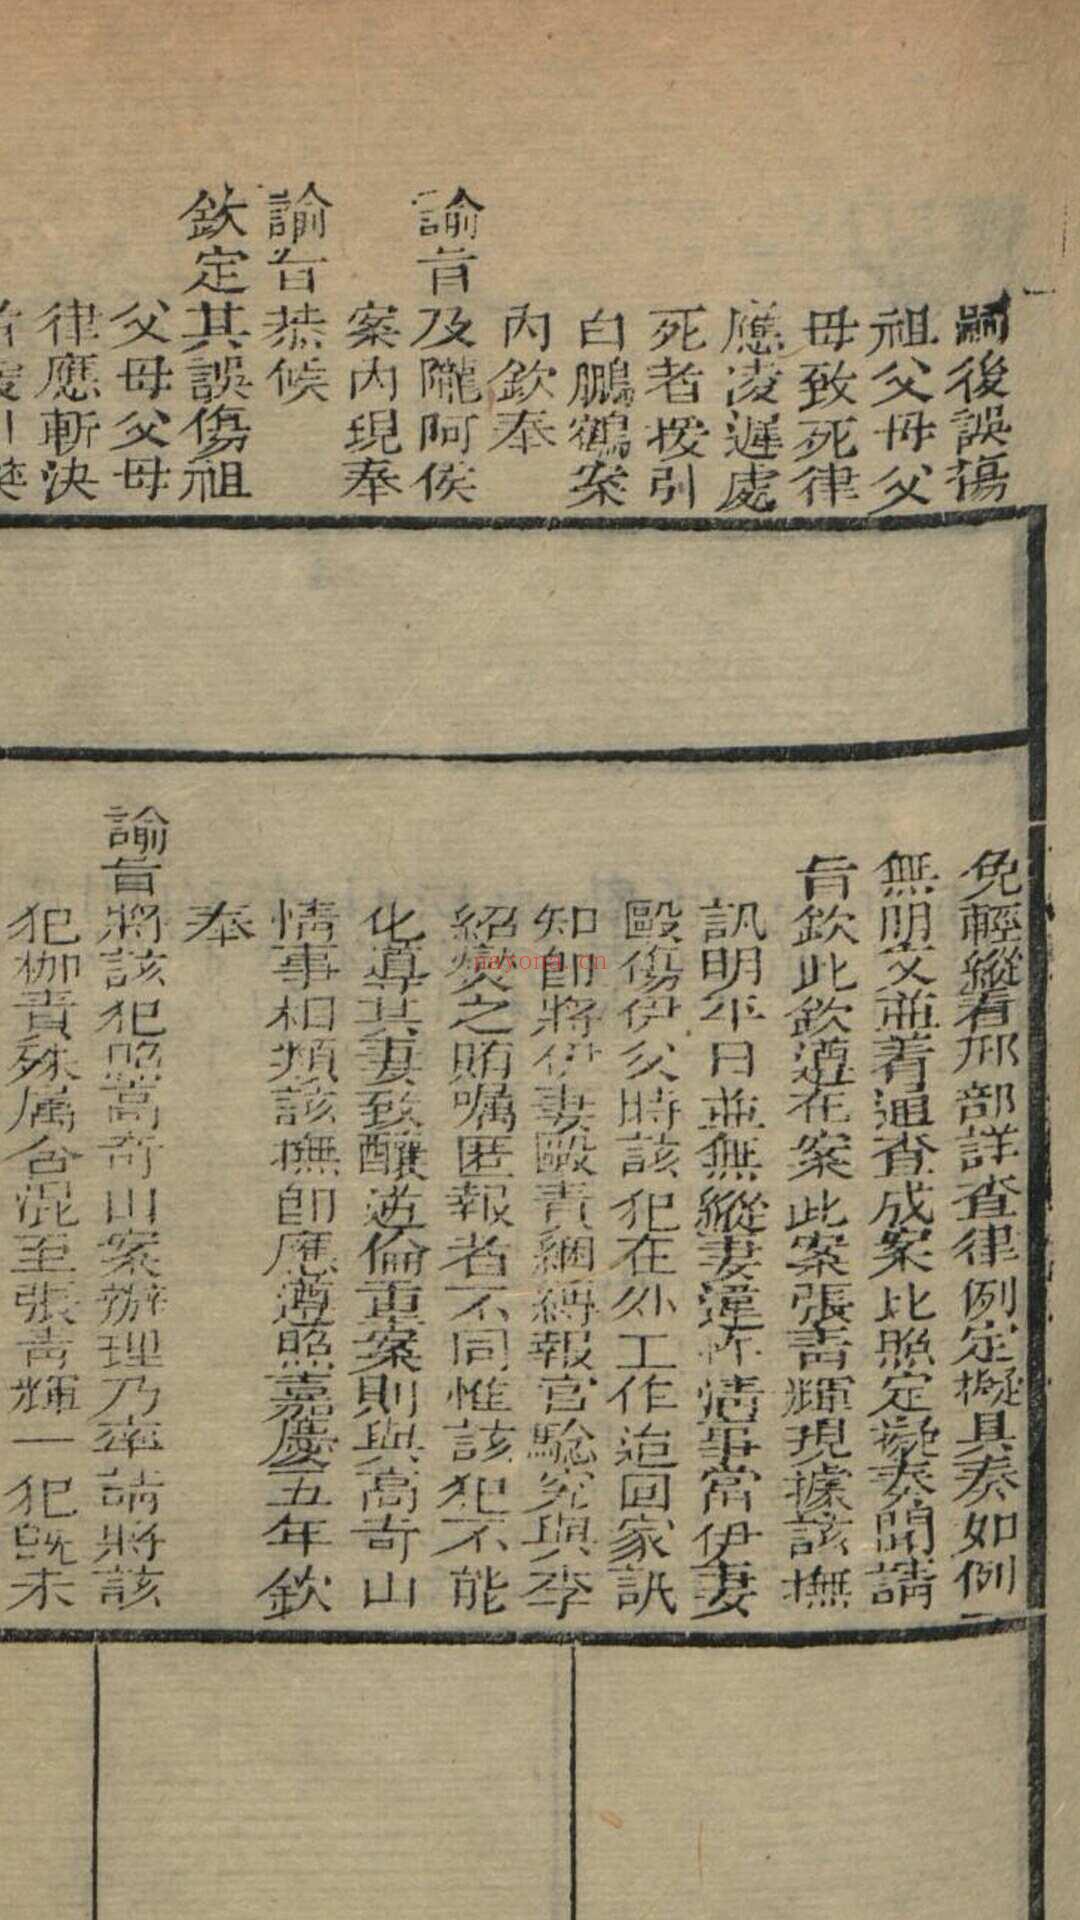 嗣後誤傷
祖父母父
母致死律
應凌遲處
死者援引
白鵬鶴案
內欽奉
諭旨及隴阿候
案內現奉
諭旨恭候
欽定其誤傷祖
父母父母
律應斬決
免輕縱着刑部詳查律例定擬具奏如例
無明文並着通查成案比照定擬奏聞請
旨欽此欽遵在案此案張靑輝現據該撫
訊明平日並無縱妻違忤情事當伊妻
毆傷伊父時該犯在外工作迨回家訊
知卽將伊妻毆責綑縛報官驗究與李
紹燮之賄囑匿報者不同惟該犯不能
化導其妻致釀逆倫重案則與高奇山
情事相類該撫卽應遵照嘉慶五年欽
奉
諭旨將該犯照高奇山案辦理乃率請將該
犯枷責殊屬含混至張靑輝一犯旣未
nayona.cn